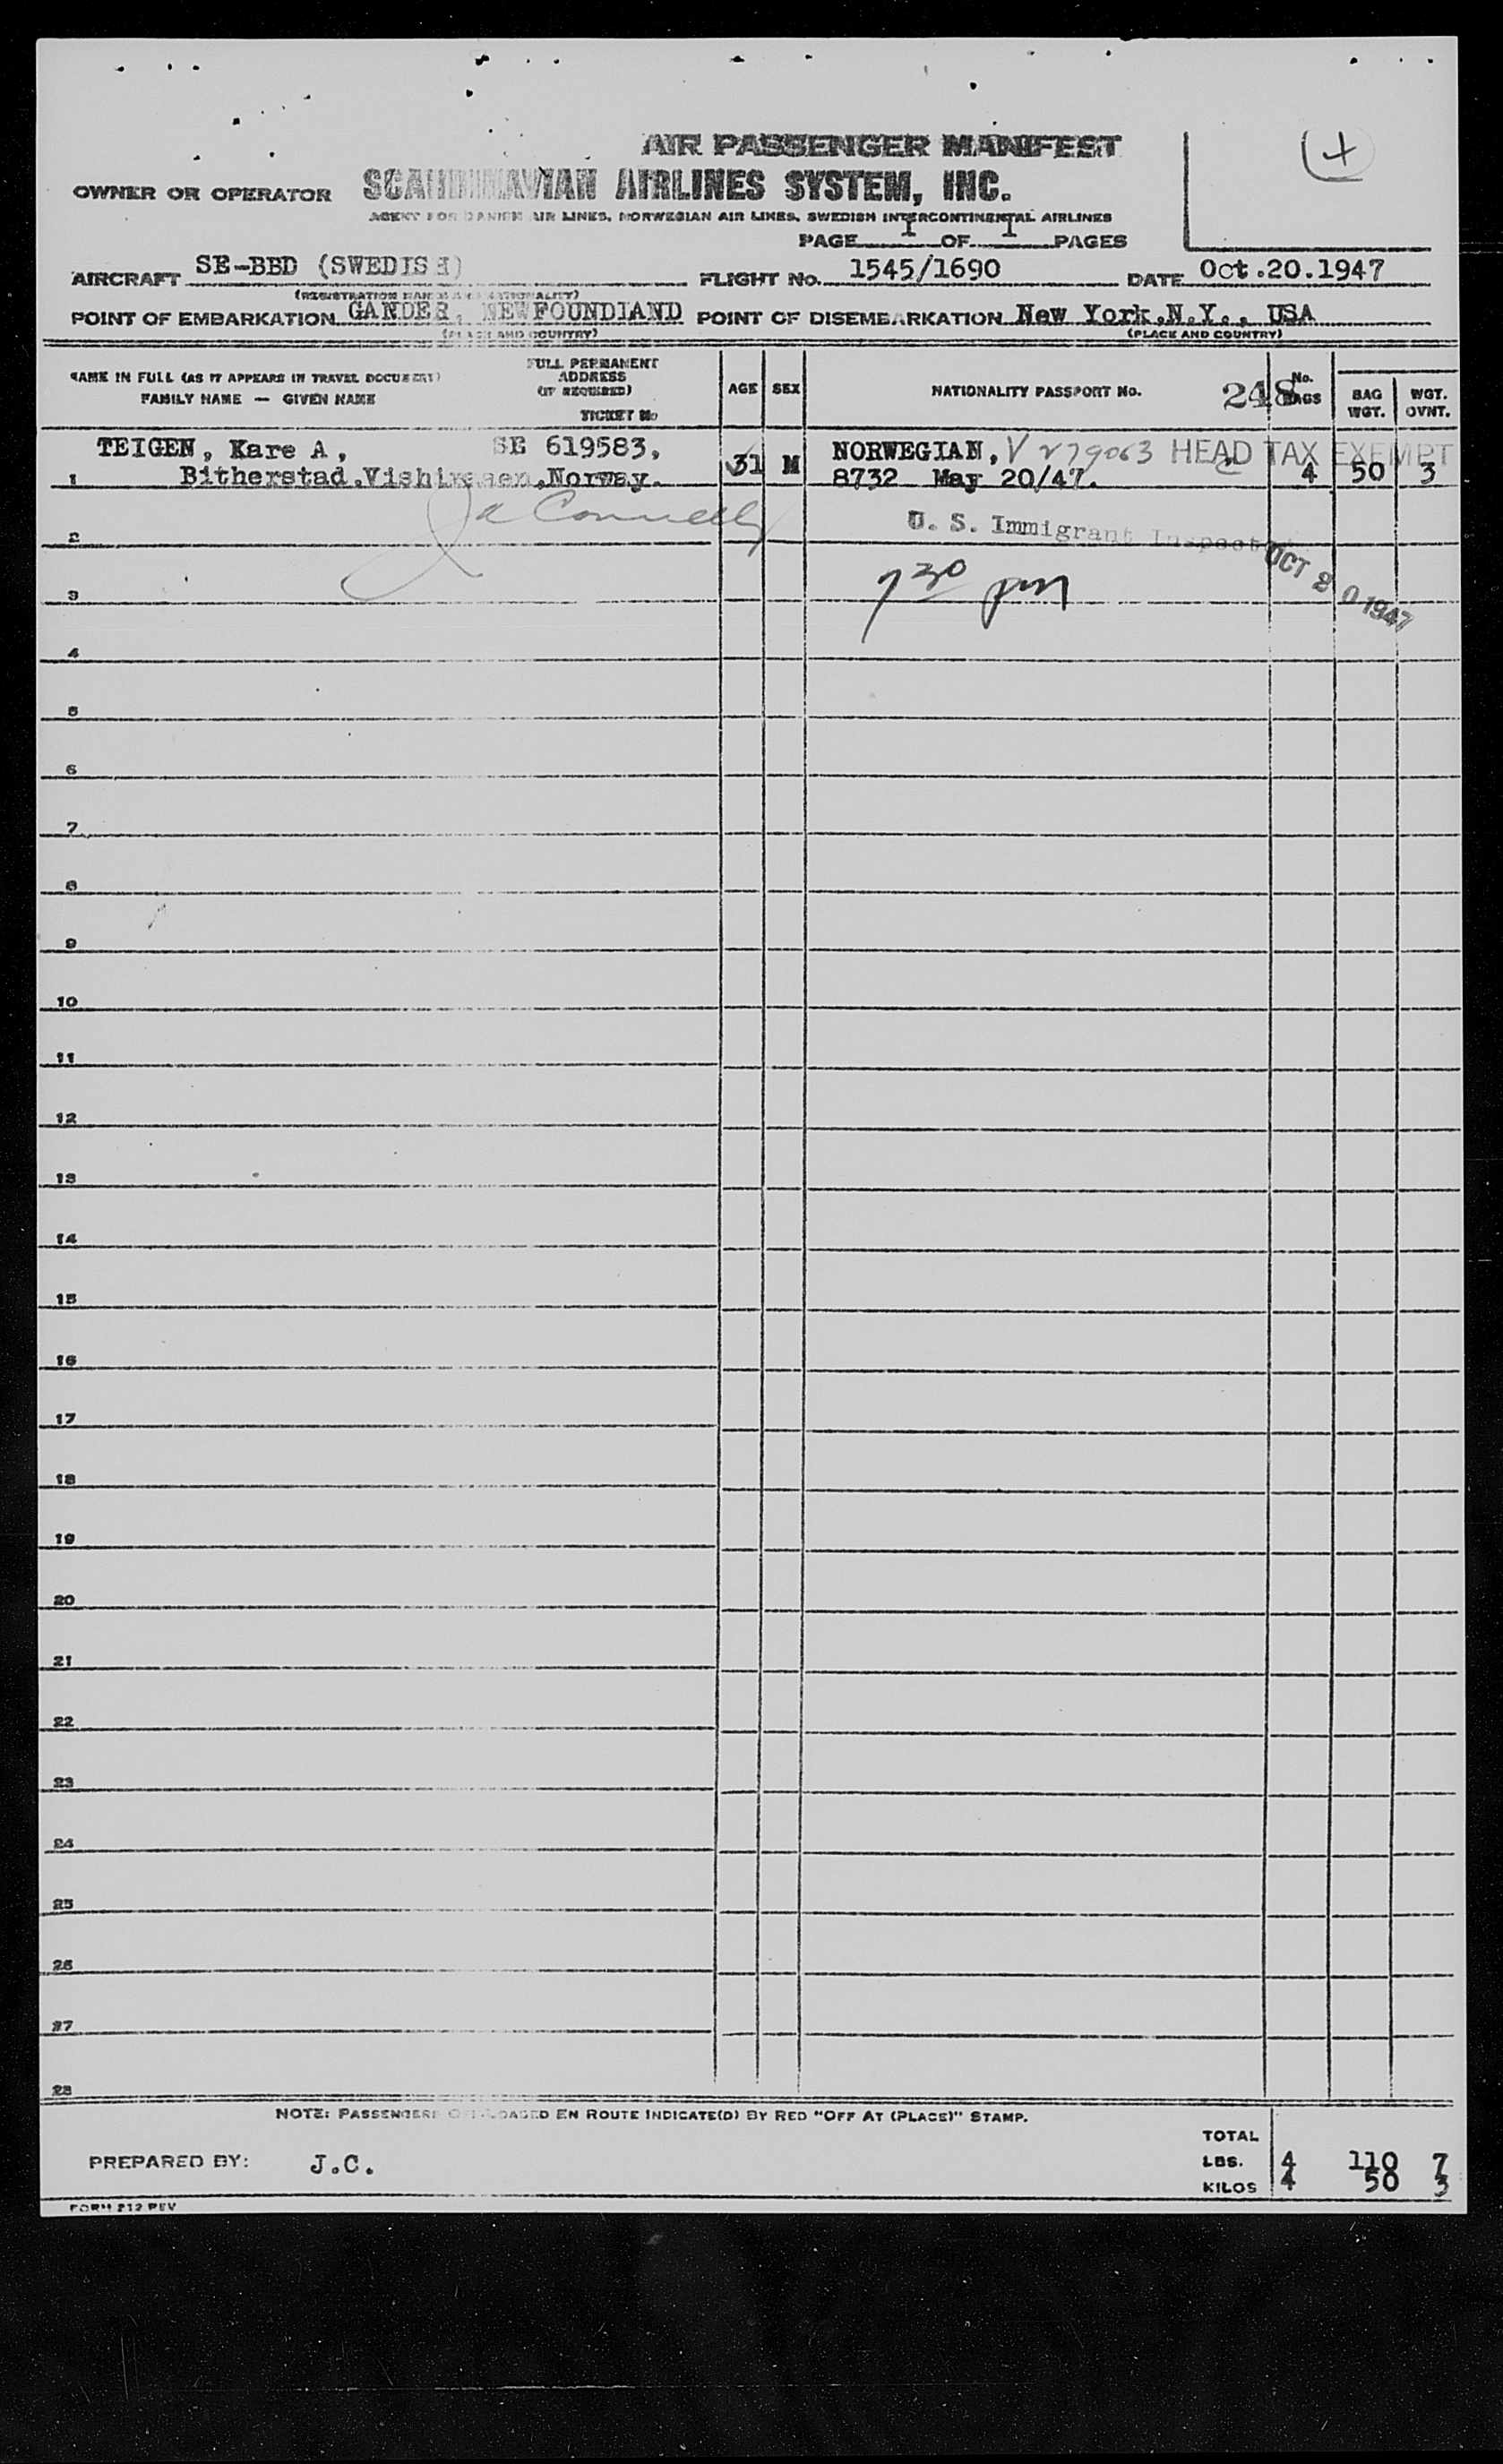 AIR PASSENGER MANIFEST
OWNER OR OPERATOR SCANDINAVIAN AIRLINES SYSTEM, INC.
AGENT FOR DANISH AIR LINES, NORWEGIAN AIR LINES, SWEDISH INTERCONTINENTAL AIRLINES
PAGE 1 OF 1 PAGES
AIRCRAFT SE-BBD (SWEDISH) FLIGHT No. 1545/1690 DATE Oct.20.1947
(REGISTRATION MARKS AND NATIONALITY)
POINT OF EMBARKATION GANDER, NEWFOUNDLAND POINT OF DISEMBARKATION New York,N.Y., USA
(PLACE AND COUNTRY) (PLACE AND COUNTRY)
NAME IN FULL (AS IT APPEARS IN TRAVEL DOCUMENT) FULL PERMANENT ADDRESS (IF REQUIRED) AGE SEX NATIONALITY PASSPORT No. 248 No. BAGS BAG WGT. WGT. OVNT.
FAMILY NAME — GIVEN NAME TICKET No
TEIGEN, Kare A, SE 619583, 31 M NORWEGIAN, V 279063 HEAD TAX EXEMPT
1 Bitherstad, Norway. 8732 May 20/47. 4 50 3
Connelly U. S. Immigrant Inspector
2 OCT 20 1947
3 7 30 pm
4
5
6
7
8
9
10
11
12
13
14
15
16
17
18
19
20
21
22
23
24
25
26
27
28
NOTE: PASSENGERS OFF-LOADED EN ROUTE INDICATE(D) BY RED "OFF AT (PLACE)" STAMP.
TOTAL
PREPARED BY: J.C. LBS. 4 110 7
KILOS 4 50 3
FORM 212 REV